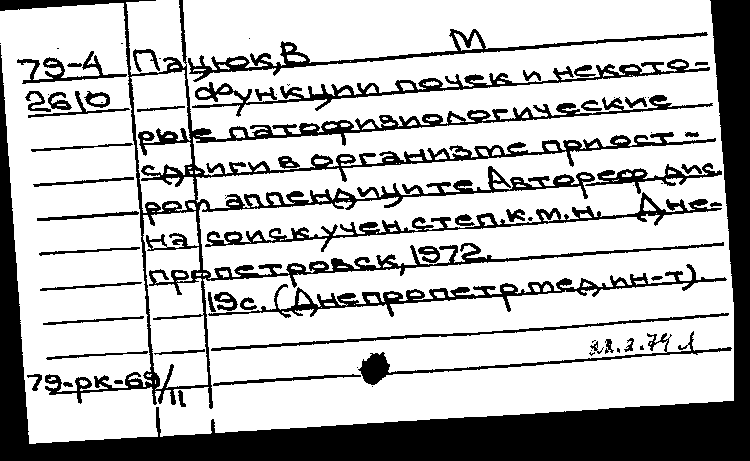 79-4 Пацюк, В М
2610 Функции почек и некото-
рые патофизиологические
сдвиги в организме при ост-
ром аппендиците. Автореф. дис.
на соиск. учен. степ. к. м. н. Дне-
пропетровск, 1972.
19 с. (Днепропетр. мед. ин-т).
79-рк-69/11